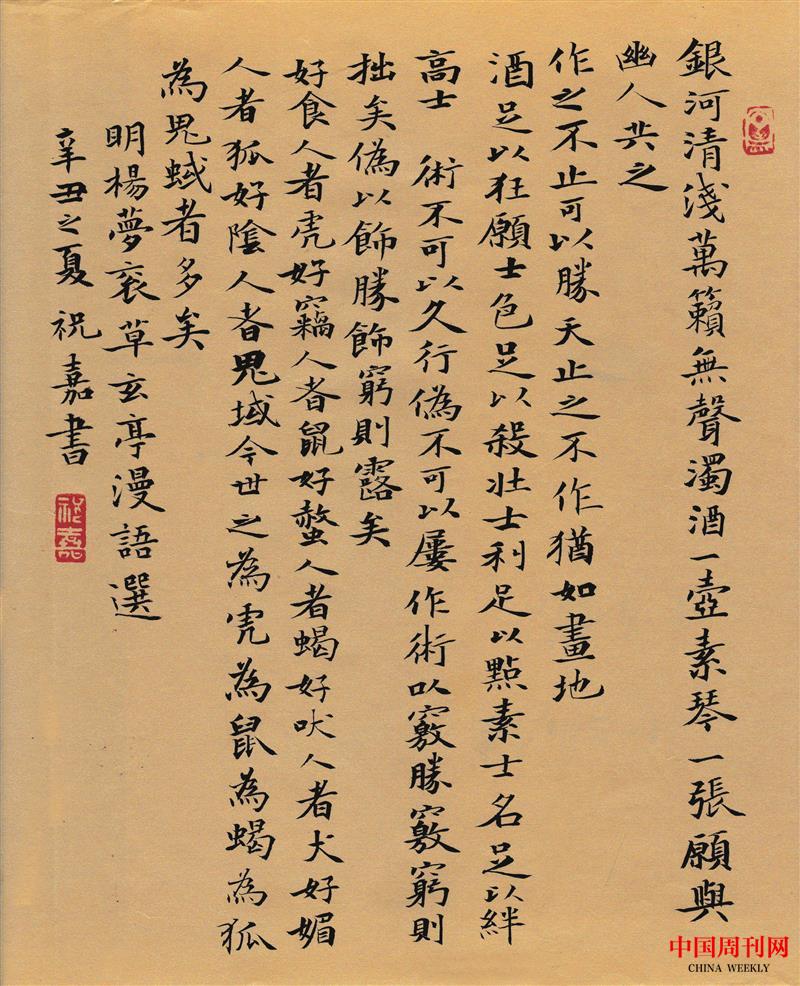 銀河清淺萬籟無聲濁酒一壺素琴一張願與
幽人共之
作之不止可以勝天止之不作猶如畫地
酒足以狂願士色足以殺壯士利足以點素士名足以絆
高士　術不可以久行偽不可以屢作術以竅勝竅窮則
拙矣偽以飾勝飾窮則露矣
好食人者虎好竊人者鼠好螫人者蝎好吠人者犬好媚
人者狐好陰人者鬼蜮今世之為虎為鼠為蝎為狐
為鬼蜮者多矣
明楊夢袞草玄亭漫語選
辛丑之夏 祝嘉書
祝嘉
中国周刊网
CHINA WEEKLY